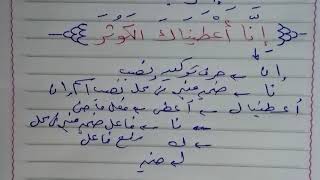 إِنَّا أَعْطَيْنَاكَ الكَوْثَرَ
إن ← حرف توكيد ونصب
نا ← ضمير متصل في محل نصب اسم إن
أعطيناك ← أعطى ← فعل ماض
← نا ← فاعل ضمير متصل في محل
رفع فاعل
← ك